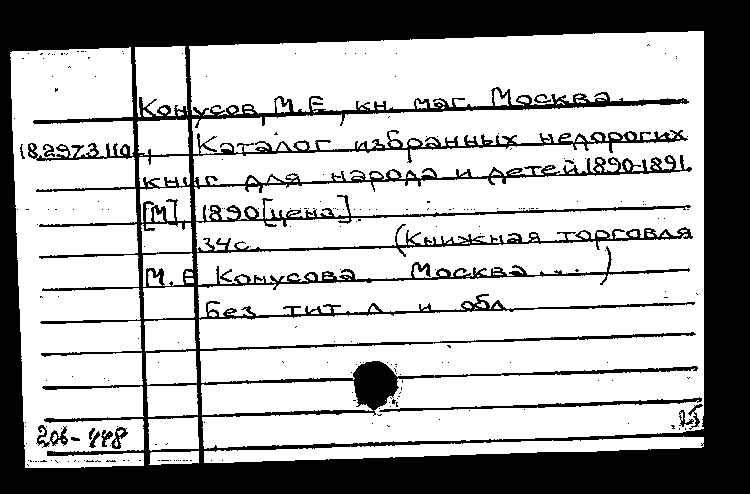 Конусов, М.Е., кн. маг. Москва.
18.297.3.110 Каталог избранных недорогих
книг для народа и детей. 1890-1891.
[М], 1890 [цена].
34с. (Книжная торговля
М. Е Конусова. Москва...)
Без тит. л. и обл.
206-448